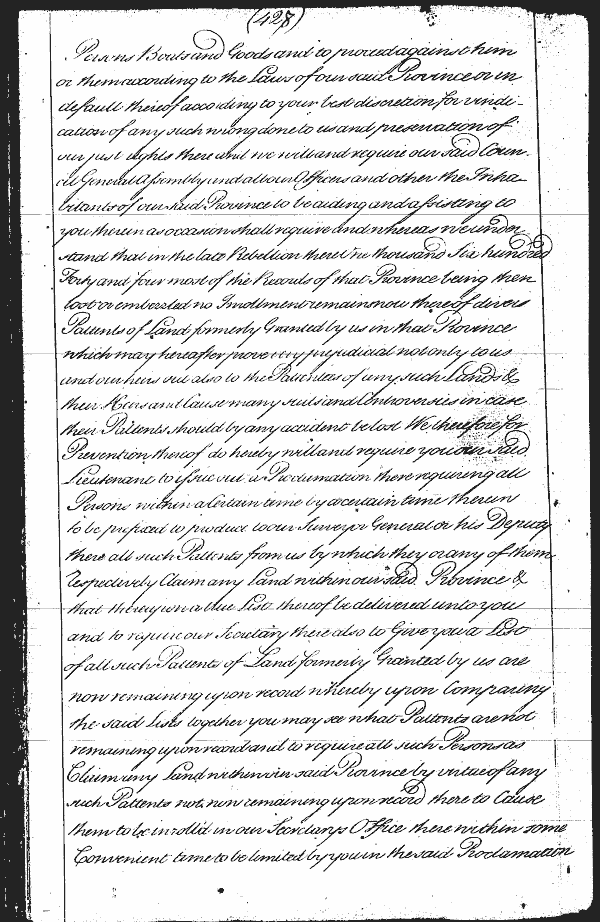 (428)
Persons Boats and Goods and to proceed against him
or them according to the Laws of our said Province or in
default thereof according to your best discretion for vindi-
cation of any such wrong done to us and preservation of
our just rights there and we will and require our said Coun-
cil General Assembly and all our Officers and other the Inha-
bitants of our said Province to be aiding and assisting to
you therein as occasion shall require and whereas we under
stand that in the late Rebellion there One thousand Six hundred
Forty and four most of the Records of that Province being then
lost or embezzled no Inrollment remains now thereof divers
Pattents of Land formerly Granted by us in that Province
which may hereafter prove very prejudicial not only to us
and our heirs but also to the Pattentees of any such Lands &
their Heirs and Cause many suits and Controversies in case
their Pattents should by any accident be lost We therefore for
Prevention thereof do hereby will and require you our said
Lieutenant to issue out a Proclamation there requiring all
Persons within a Certain time by a certain time therein
to be prefixed to produce to our Surveyor General or his Deputy
there all such Pattents from us by which they or any of them
respectively Claim any Land within our said Province &
that thereupon a true List thereof be delivered unto you
and to require our Secretary there also to Give you a List
of all such Pattents of Land formerly Granted by us are
now remaining upon record whereby upon Comparing
the said Lists together you may see what Pattents are not
remaining upon record and to require all such Persons as
Claim any Land within our said Province by virtue of any
such Pattents not now remaining upon record there to Cause
them to be inrolld in our Secretarys Office there within some
Convenient time to be limited by you in the said Proclamation